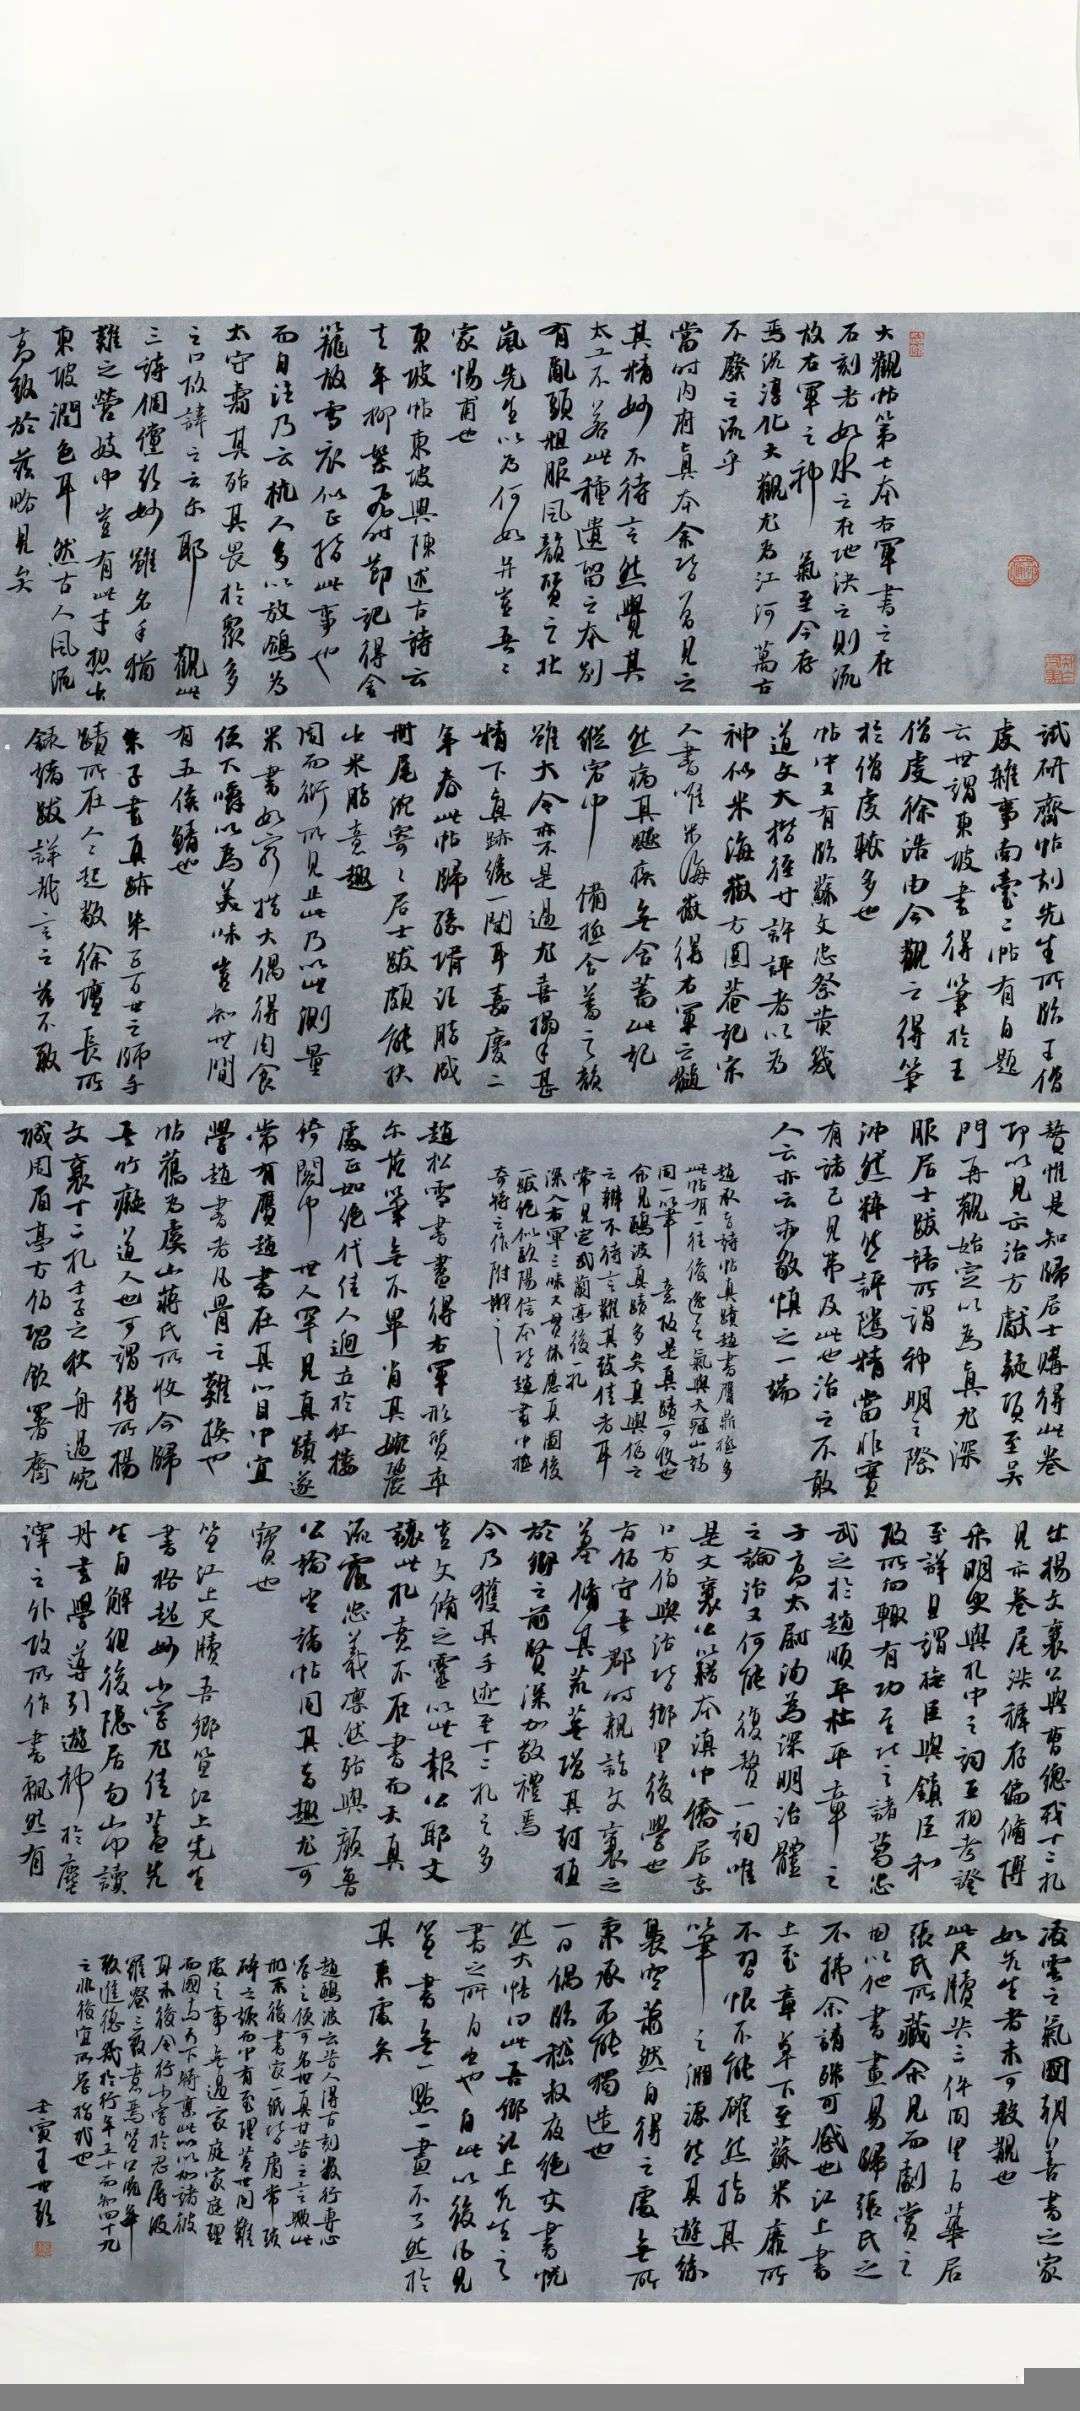 大觀帖第七本右軍書之在
石刻者如水之在地決之則流
故右軍之神氣至今存
焉況淳化大觀尤為江河萬古
不廢之流乎
當時內府真本余皆曾見之
其精妙不待言然覺其
太工不若此種遺留之本別
有亂頭粗服風韻質之北
嵐先生以為何如并豈吾
家惕甫也
東坡帖東坡與陳述古詩云
去年柳絮飛時節記得金
籠放雪衣似正指此事也
而自注乃云杭人多以放鴿為
太守壽其殆其畏於眾多
之口故諱之云尔耶觀此
三詩倜儻彭妙雖名手猶
難之營妓中豈有此才想出
東坡潤色耳然古人風流
高致於茲略見矣
試研齋帖刻先生所臨王僧
虔雜事南臺二帖有自題
云世謂東坡書得筆於王
僧虔徐浩由今觀之得筆
於僧虔較多也
帖中又有臨蘇文忠祭黃幾
道文大楷徑寸許評者以為
神似米海嶽方圓菴記宋
人書唯米海嶽得右軍之髓
然病其駛疾無含蓄此記
縱宕中備極含蓄之韻
雖大令亦不是過尤喜搨手甚
精下真跡纔一間耳嘉慶二
年春此帖歸孫壻汪
冊尾沈寄居士跋頗能扶
出米脂意趣
周而衍所見止此乃以此測量
米書如窮措大偶得肉食
便下嚼以為美味豈知世間
有五侯鯖也
朱子書真跡朱子百世之師手
蹟所在人人起敬徐壇長所
錄諸跋詳哉言之茲不敢
贅惟是知歸居士購得此卷
即以見示治方獻疑項至吳
門再觀始定以為真尤深
服居士跋語所謂神明之際
沛然釋然評騭精當非實
有諸己見弗及此也治之不敢
人云亦云亦敬慎之一端
趙承旨詩帖真蹟趙書贗鼎極多
此帖有一往後逸之氣與天冠山詩
同一筆意故是真蹟可收也
余見鷗波真蹟多矣真與偽之
辨不待言難其致佳者耳
常見定武蘭亭後一札
深入右軍三昧大貫休應真圖後
一跋絕似歐陽信本皆趙書中極
奇特之作附識之
趙松雪書畫得右軍形質率
尔落筆無不畢肖其婉麗
處正如絕代佳人迴立於紅樓
綺閣中世人罕見真蹟遂
常有贗趙書在其心目中宜
學趙書者凡骨之難換也
帖舊為虞山蔣氏所收今歸
吾竹癡道人也可謂得所楊
文襄十二札壬子之秋舟過皖
城周眉亭方伯留飲署齋
出楊文襄公與曹總戎十二札
見示卷尾洪稚存偏脩博
采明史與札中之詞互相考證
至詳且謂撫臣與鎮臣和
故所向輒有功至比之諸葛忠
武之於趙順平杜平章之
子高太尉洵為深明治體
之論治又何能復贅一詞唯
是文襄公以籍本滇中僑居京
口方伯與治皆鄉里後學也
方伯守吾郡時親詣文襄之
墓脩其荒蕪增其封植
於鄉之前賢深加敬禮焉
今乃獲其手迹至十二札之多
豈文脩之靈以此報公耶文
讓此札貴不在書而天真
流露忠義凜然殆與顏魯
公論坐諸帖同其旨趣尤可
寶也
笪江上尺牘吾鄉笪江上先生
書格超妙小字尤佳蓋先
生自解組後隱居句山中讀
丹書學導引遊神於塵
𡏖之外故所作書飄然有
凌雲之氣國朝善書之家
如先生者未可數覯也
此尺牘共三件同里百華居
張氏所藏余見而劇賞之
因以他書畫易歸張氏之
不拂余請殊可感也江上書
上至章草下至蘇米靡所
不習恨不能確然指其
筆之淵源然其遊絲
裊空蕭然自得之處無所
秉承不能獨造也
一日偶臨嵇叔夜絕交書恍
然大悟曰此吾鄉江上先生之
書之所自出也自此以後治見
笪書無一點一畫不了然於
其來處矣
趙鷗波云昔人得古刻數行專心
學之便可名世真甘苦之言類此
刑不後書家一紙皆庸常瑣
碎之語而中有至理蓋世間難
處之事無過家庭家庭理
而國与天下騎棄此以加諸彼
耳未後令行小字於忍辱波
羅蜜三致意焉笪公晚年
致進德幾於行年五十而知四十九
之非後宜所學指我也
壬寅王世鼓